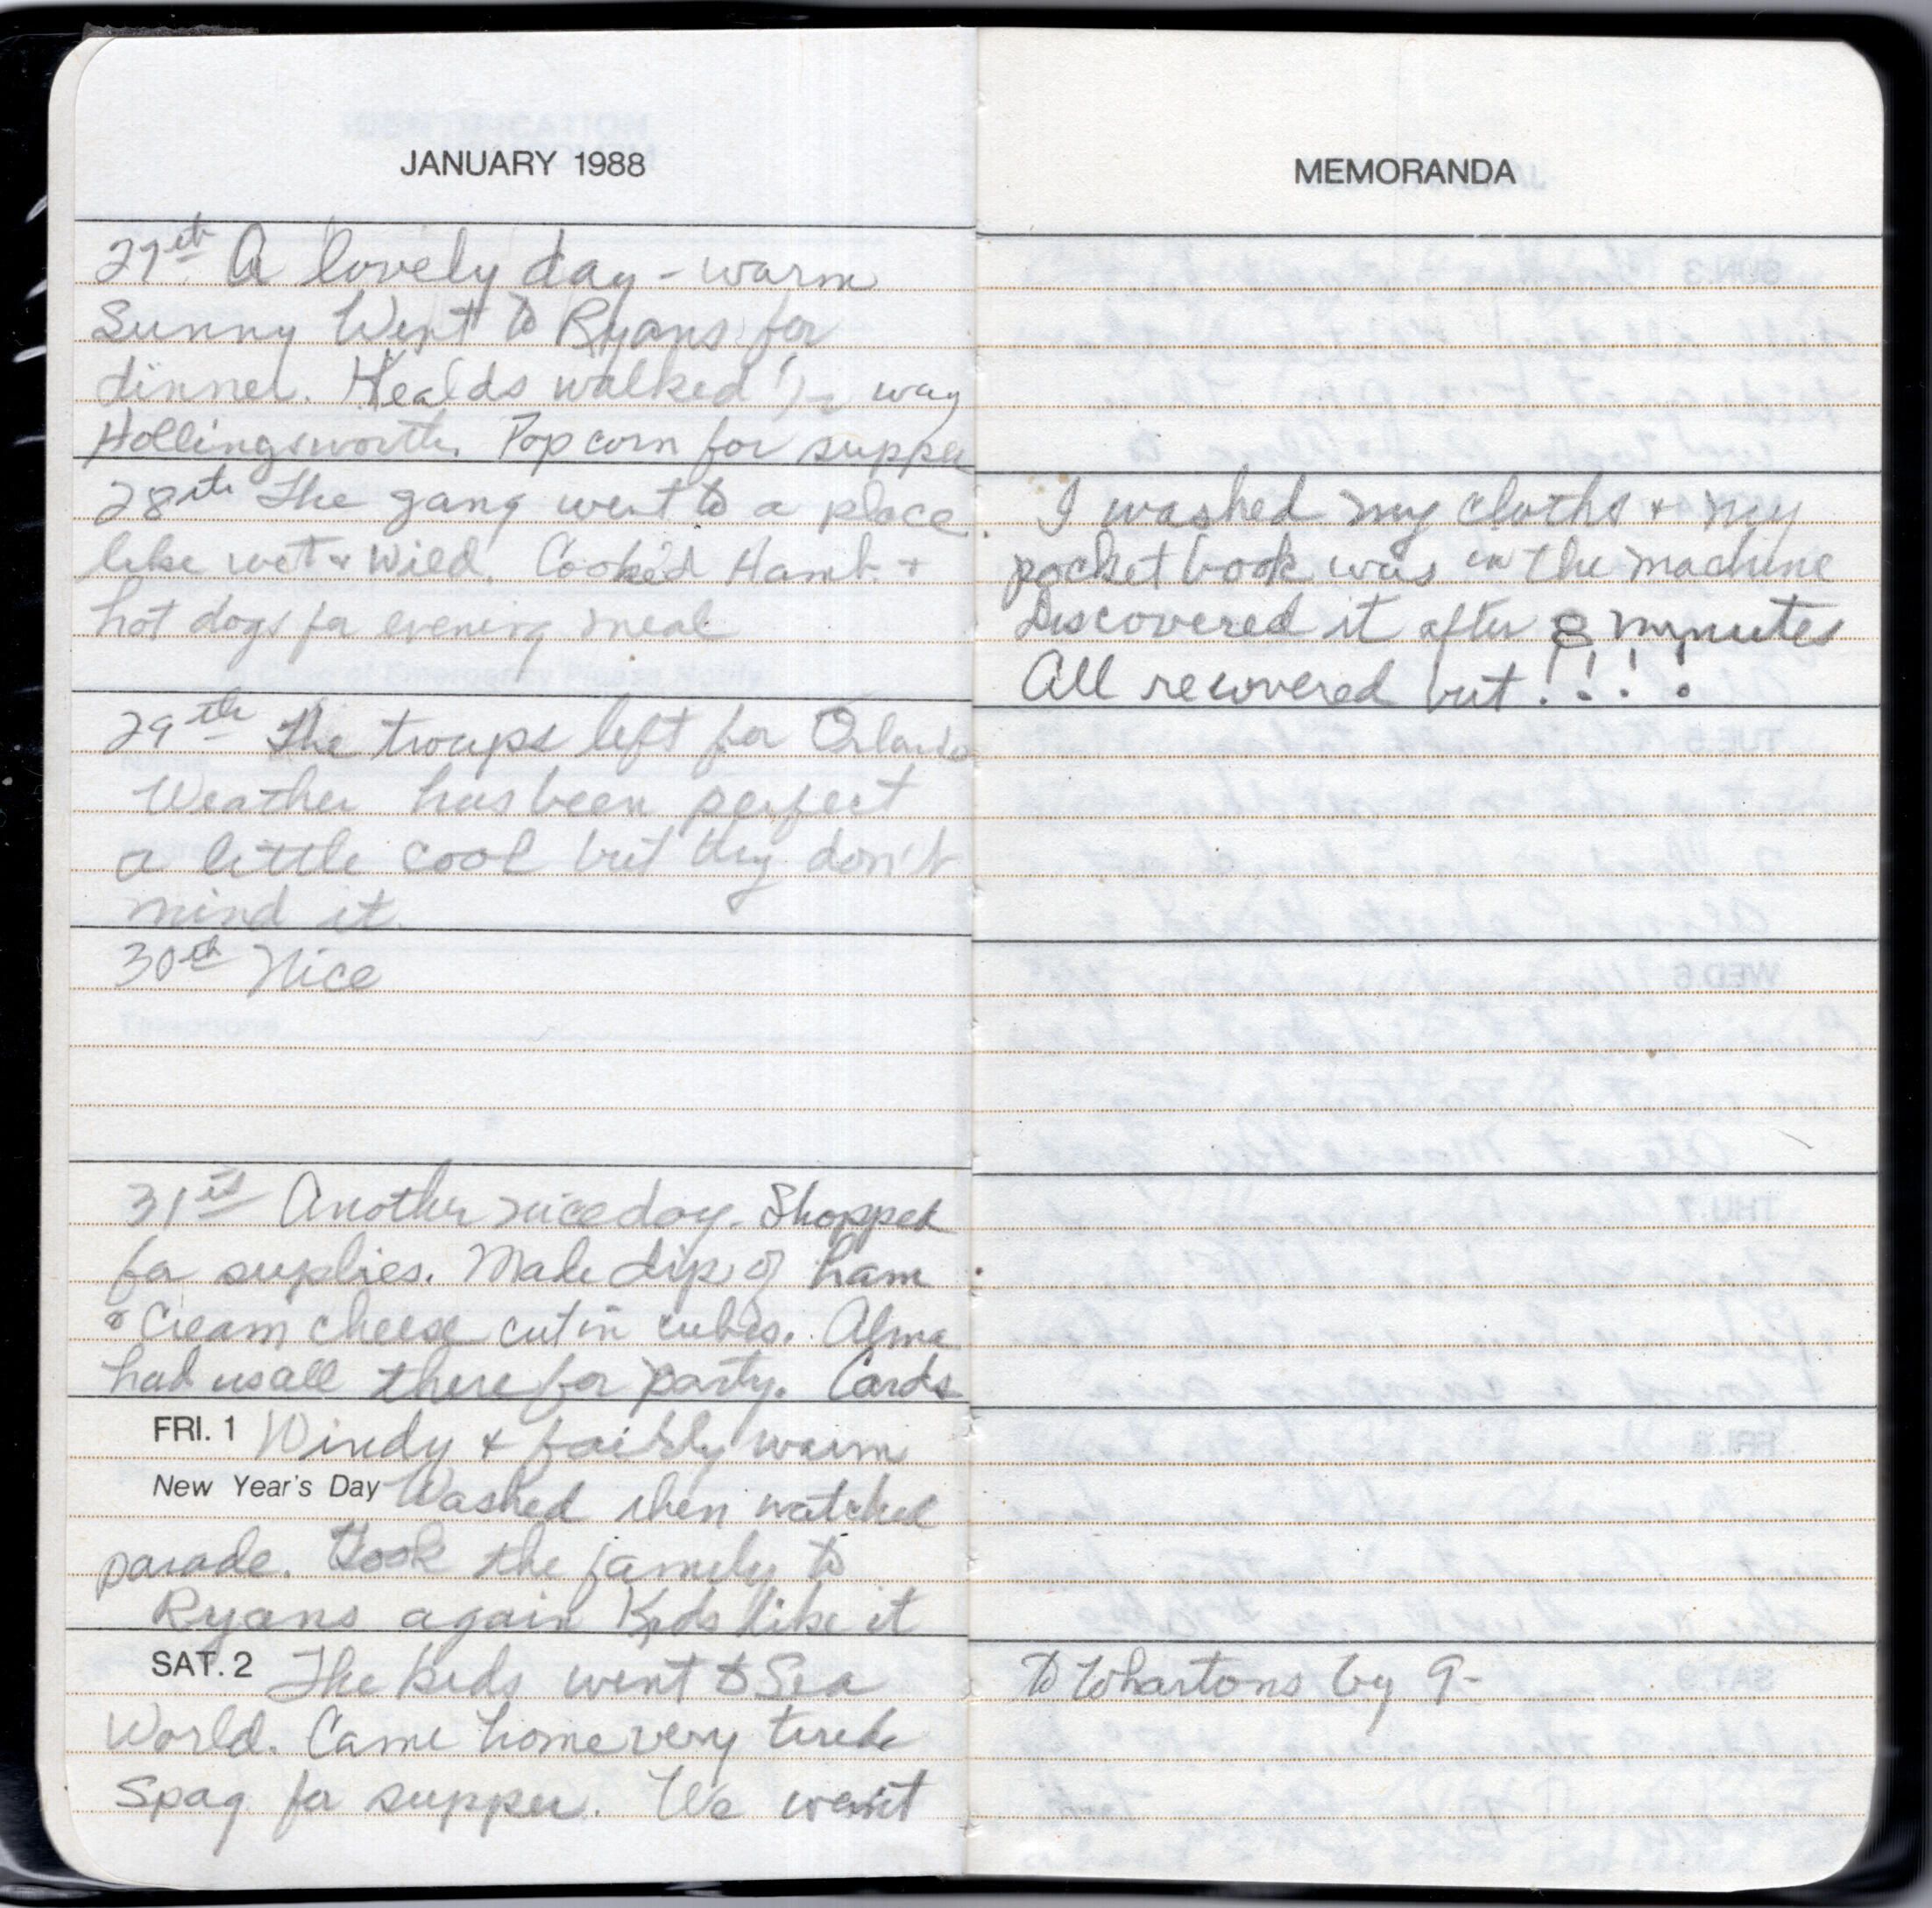 JANUARY 1988
27th A lovely day - warm
Sunny Went to Ryans for
dinner. Healds walked 1/2 way
Hollingsworth. Pop corn for supper
28th The gang went to a place
like wet & Wild. Cooked Hamb. +
hot dogs for evening meal
29th The troups left for Orlando
Weather has been perfect
a little cool but they don't
mind it.
30th Nice
31st Another nice day. Shopped
for suplies. Made dip of ham
& Cream cheese cut in cubes. Alma
had us all there for party. Cards
FRI. 1 Windy & fairly warm
New Year's Day Washed then watched
parade. Took the family to
Ryans again Kids like it
SAT. 2 The kids went to Sea
World. Came home very tired
Spag for supper. We went
MEMORANDA
I washed my cloths + my
pocket book was in the machine
Discovered it after 8 minutes
All recovered but !!!!
to Whartons by 9-